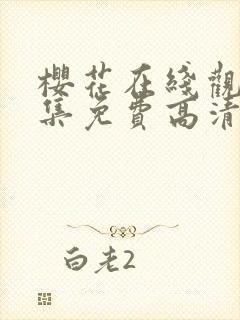 櫻花在綫觀
集免費高清
白老2